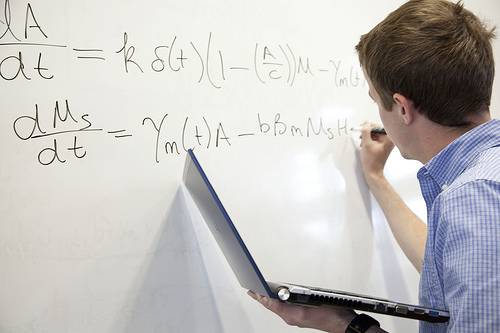 dA/dt = k δ(t)(1-(A/c))M - γm(t)
dMs/dt = γm(t)A - bBmMsH